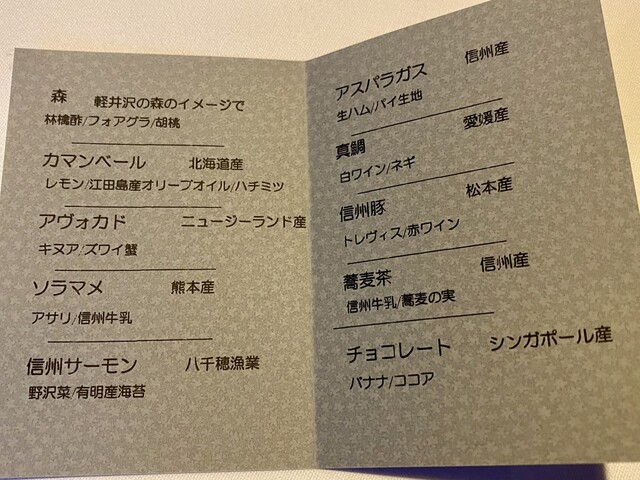 森 軽井沢の森のイメージで
林檎酢/フォアグラ/胡桃
カマンベール 北海道産
レモン/江田島産オリーブオイル/ハチミツ
アヴォカド ニュージーランド産
キヌア/ズワイ蟹
ソラマメ 熊本産
アサリ/信州牛乳
信州サーモン 八千穂漁業
野沢菜/有明産海苔
アスパラガス 信州産
生ハム/パイ生地
真鯛 愛媛産
白ワイン/ネギ
信州豚 松本産
トレヴィス/赤ワイン
蕎麦茶 信州産
信州牛乳/蕎麦の実
チョコレート シンガポール産
バナナ/ココア